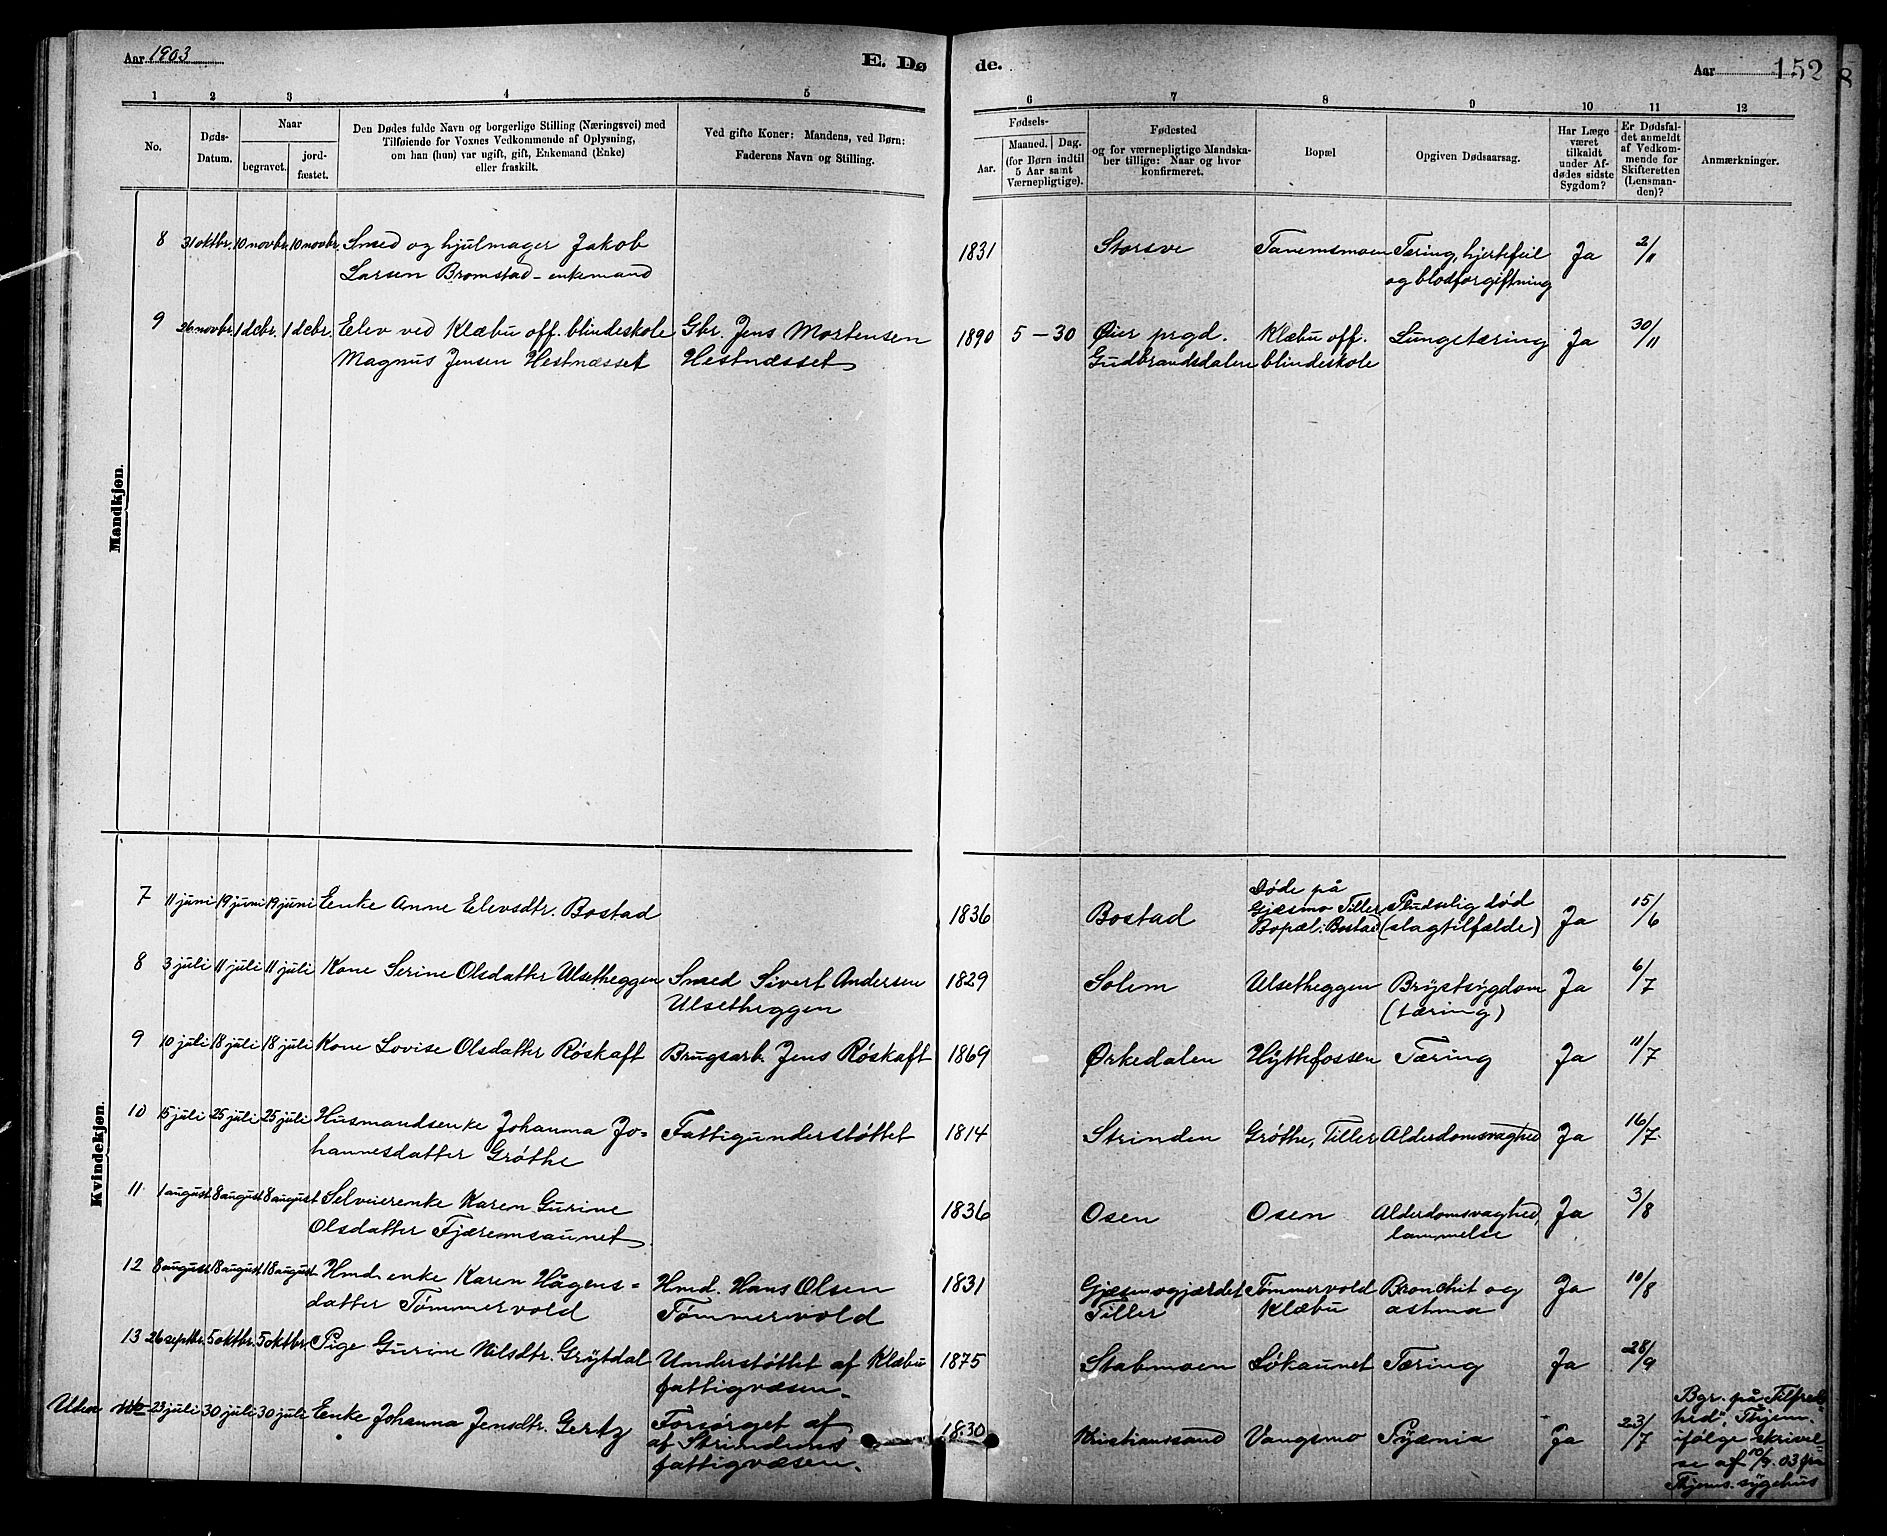 Aar 1903
E. Dø
de.
Aar 152
1 2 3 4 5 6 7 8 9 10 11 12
No.
Døds-
Datum.
Naar
begravet.
jord-
fæstet.
Den Dødes fulde Navn og borgerlige Stilling (Næringsvei) med
Tilføiende for Voxnes Vedkommende af Oplysning,
om han (hun) var ugift, gift, Enkemand (Enke)
eller fraskilt.
Ved gifte Koner: Mandens, ved Børn:
Faderens Navn og Stilling.
Fødsels-
Aar.
Maaned. Dag.
(for Børn indtil
5 Aar samt
Værnepligtige).
Fødested
og for værnepligtige Mandska-
ber tillige: Naar og hvor
konfirmeret.
Bopæl
Opgiven Dødsaarsag.
Har Læge
været
tilkaldt
under Af-
dødes sidste
Sygdom?
Er Dødsfal-
det anmeldt
af Vedkom-
mende for
Skifteretten
(Lensman-
den)?
Anmærkninger.
Mandkjøn.
8 31 oktbr. 10 novbr. 10 novbr. Smed og hjulmager Jakob 1831 Storsve Tanemsmoen Tæring, hjertefeil Ja 2/11
Larsen Bromstad - enkemand og blodforgiftning
9 26 novbr. 1 dcbr. 1 dcbr. Elev ved Klæbu off. blindeskole Gbr. Jens Mortensen 1890 5 - 30 Øier prgd. Klæbu off. Lungetæring Ja 30/11
Magnus Jensen Hestnæsset Hestnæsset Gudbrandsdalen blindeskole
Kvindekjøn.
7 11 juni 19 juni 19 juni Enke Anne Elevsdtr. Bostad 1836 Bostad Døde på
Gjæsmo Tiller Pludselig død Ja 15/6
Bopæl: Bostad (slagtilfælde)
8 3 juli 11 juli 11 juli Kone Serine Olsdattr Ulsetheggen Smed Sivert Andersen 1829 Solem Ulsetheggen Brystsygdom Ja 6/7
Ulsetheggen (tæring)
9 10 juli 18 juli 18 juli Kone Lovise Olsdattr Røskaft Brugsarb. Jens Røskaft 1869 Ørkedalen Hyttefossen Tæring Ja 11/7
10 15 juli 25 juli 25 juli Husmandsenke Johanna Jo- Fattigunderstøttet 1814 Strinden Grøthe, Tiller Alderdomsvaghed Ja 16/7
hannesdatter Grøthe
11 1 august 8 august 8 august Selveierenke Karen Gurine 1836 Osen Osen Alderdomsvaghed, Ja 3/8
Olsdatter Fjæremsaunet lammelse
12 8 august 18 august 18 august Hmd. enke Karen Hågens- Hmd. Hans Olsen 1831 Gjæsmogjærdet Tømmervold Bronchit og Ja 10/8
datter Tømmervold Tømmervold Tiller Klæbu astma
13 26 septbr. 5 oktbr. 5 oktbr. Pige Gurine Nilsdtr. Grytdal Understøttet af Klæbu 1875 Stabmoen Løkaunet Tæring Ja 28/9
fattigvæsen
Uden No 23 juli 30 juli 30 juli Enke Johanna Jensdtr. Gertz Forsørget af 1830 Kristiansand Vangsmo Pyæmia Ja 23/7 Bgr. på "Tilfreds-
af Strindens hed", Thjem.
fattigvæsen. ifølge skrivel-
se af 10/9. 03 fra
Thjems. sygehus